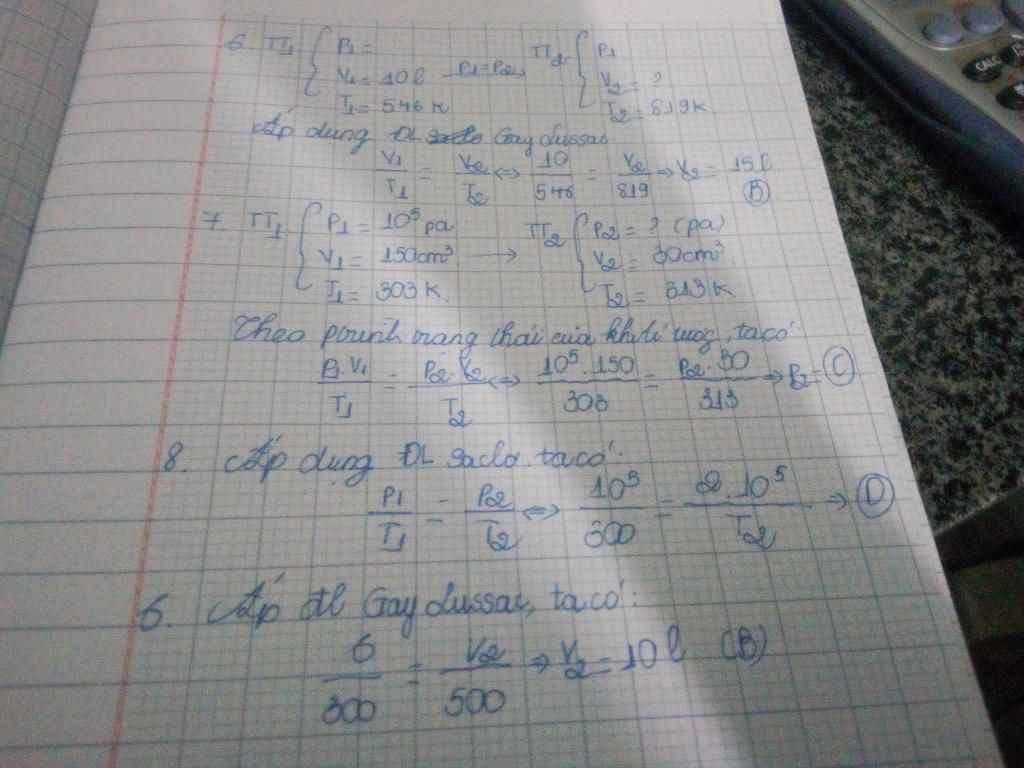 6. TT1 { P1 =
V1 = 10l
T1 = 546K
P1=P2→
TT2 { P1
V2 = ?
T2 = 819K.
Áp dụng ĐL Gay Lussac
V1/T1 = V2/T2 ⇔ 10/546 = V2/819 → V2 = 15l
(B)
7. TT1 { P1 = 10⁵ pa
V1 = 150cm³
T1 = 303K.
→
TT2 { P2 = ? (pa)
V2 = 30cm³.
T2 = 313K
Theo trạng thái của khí lí tưởg, ta có
P1.V1/T1 = P2.V2/T2 ⇔ 10⁵.150/303 = P2.30/313 → P2= (C)
8. Áp dụng ĐL saclo ta có:
P1/T1 = P2/T2 ⇔ 10⁵/300 = 2.10⁵/T2 → (D)
6. Áp đl Gay Lussac, ta có:
6/300 = V2/500 → V2 = 10l (B)
CALC